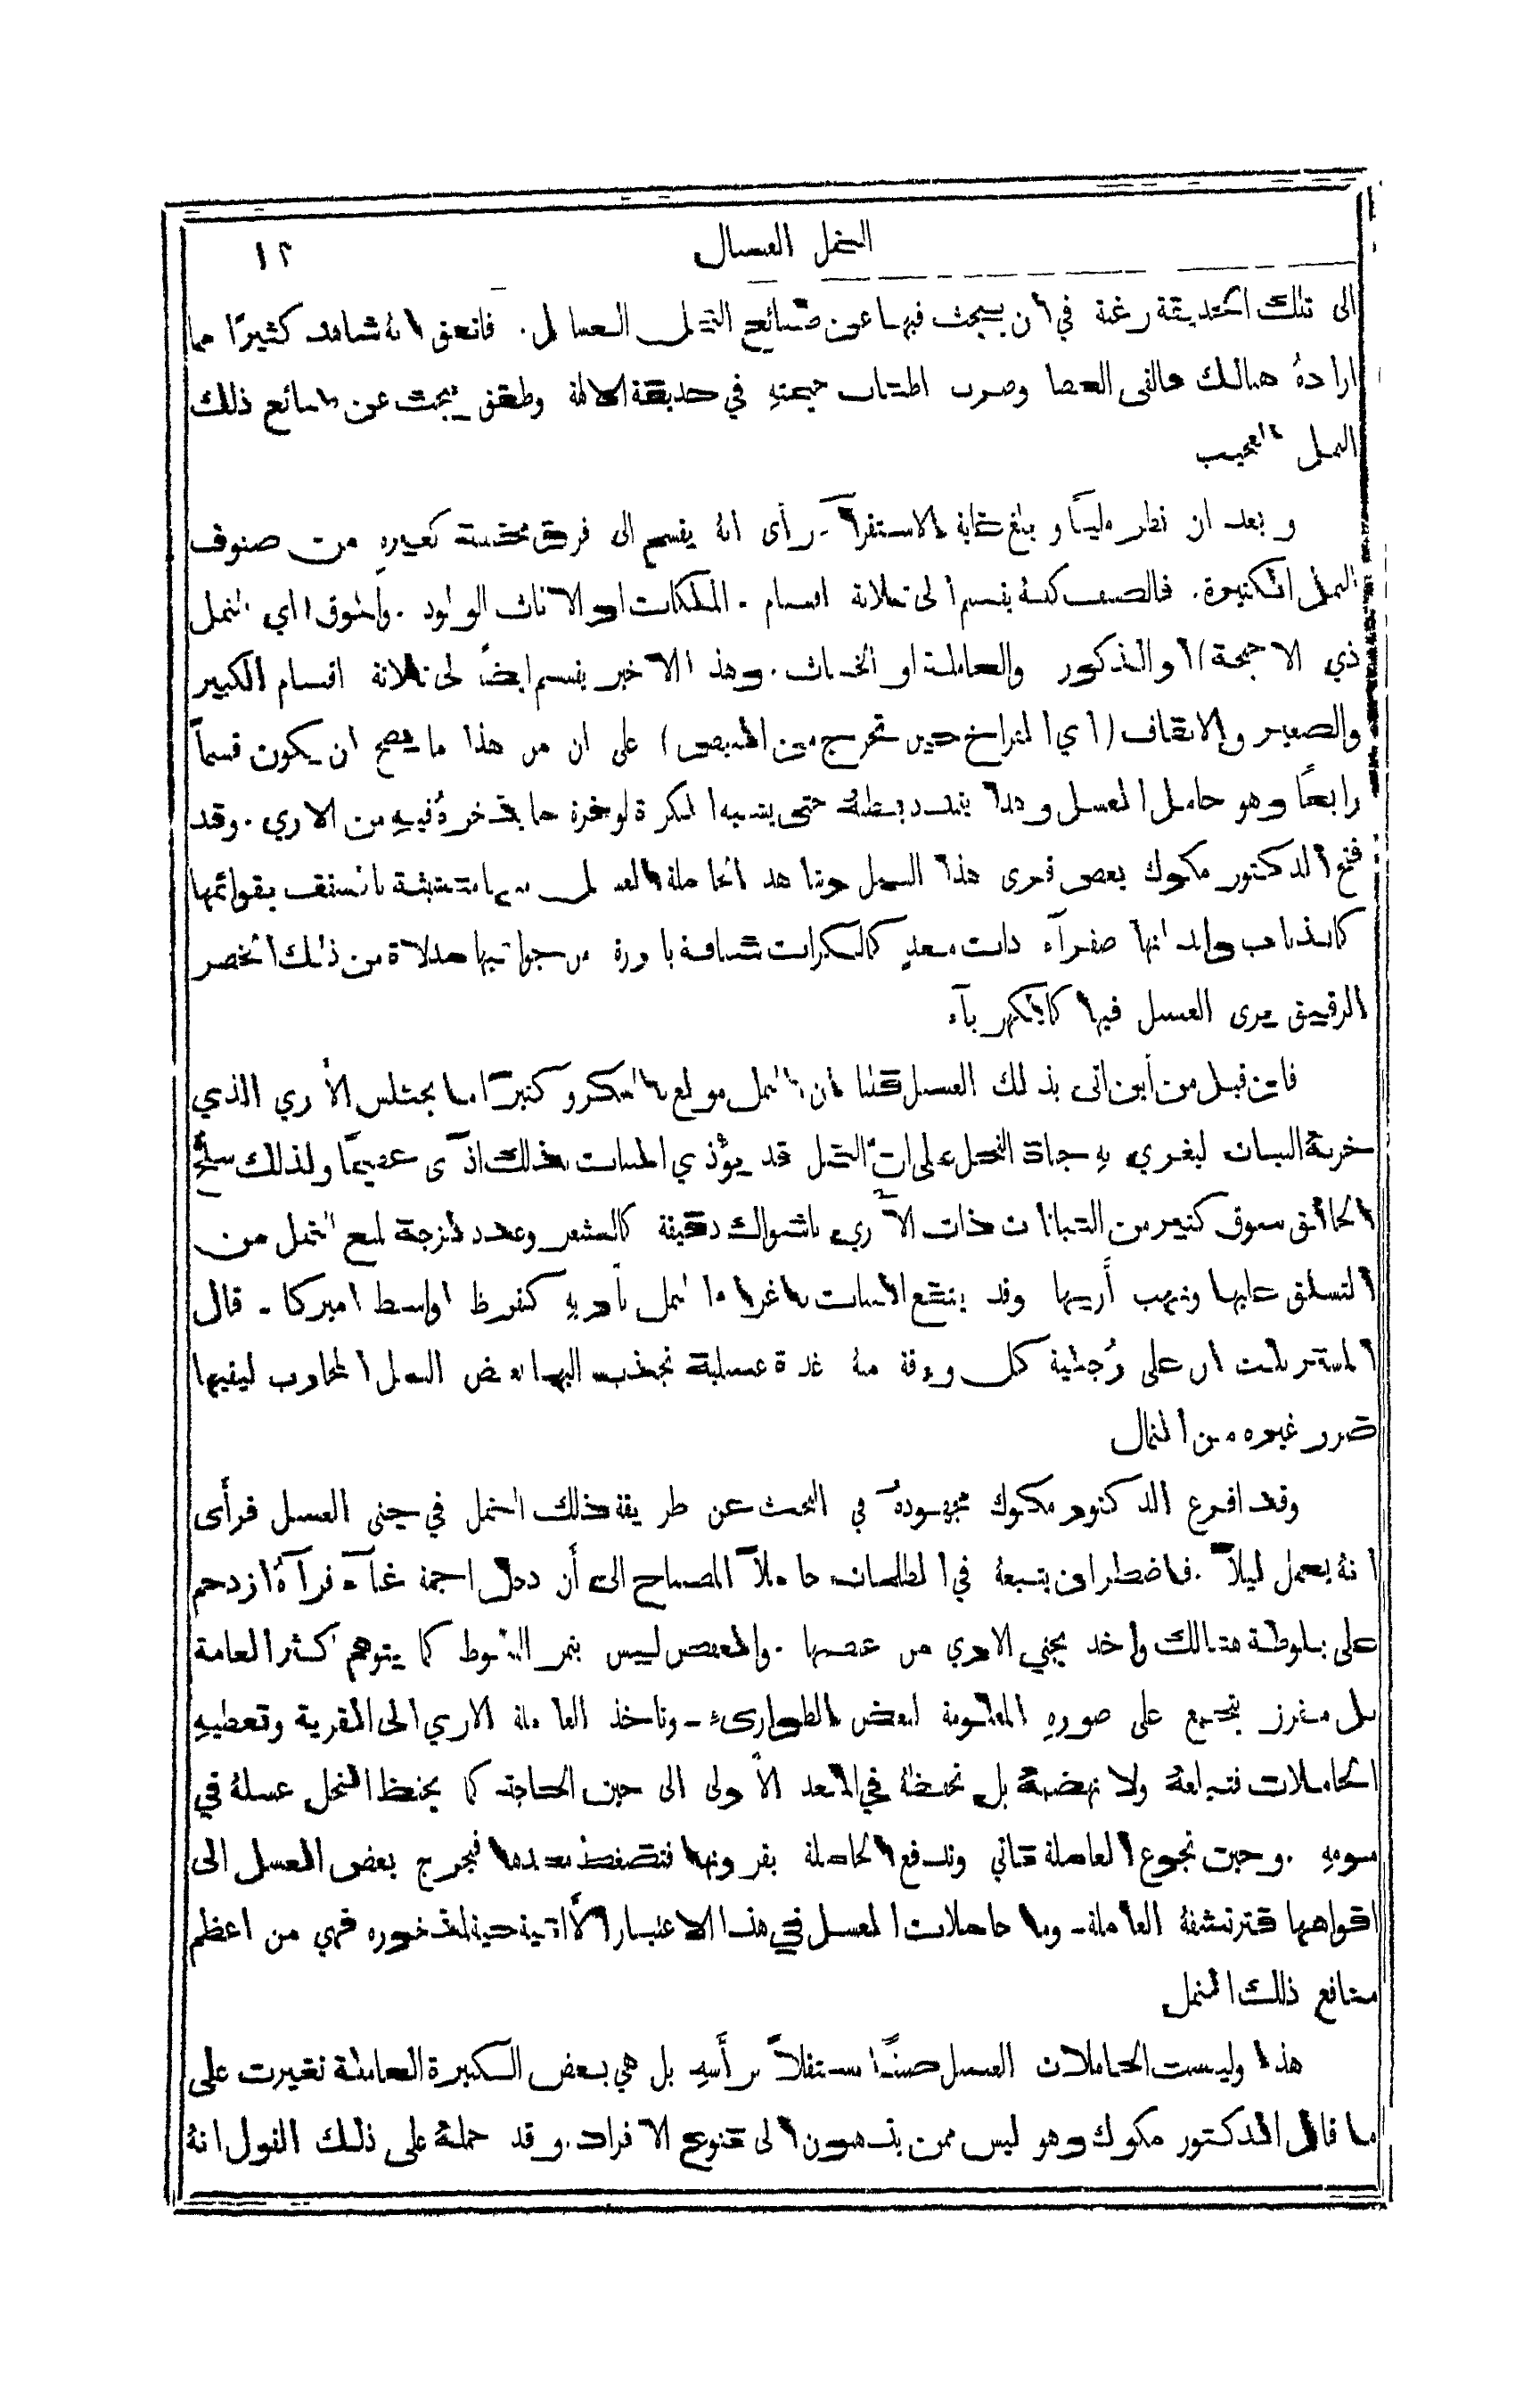 النمل العسال ٢١
الى تلك الحديقة رغبة في ان يبحث فيها عن صنائع النمل العسال. فاتفق انهُ شاهد كثيرًا مما
ارادهُ هنالك فالقى العصا وضرب اطناب خيمتهِ في حديقة الالهة وطفق يبحث عن طبائع ذلك
النمل العجيب
وبعد ان نظر مليًا وبلغ غاية الاستقرآء رأى انهُ يقسم الى فرق مختلفة كغيرهِ من صنوف
النمل الكثيرة. فالصنف كلهُ يقسم الى ثلاثة اقسام - الملكات او الاناث الولود. والجوف (اي النمل
ذي الاجنحة) او الذكور والعاملة او الخناث. وهذا الاخير يقسم ايضًا الى ثلاثة اقسام الكبير
والصغير والانقاف (اي الفراخ حين تخرج من البيض) على ان من هذا ما يصح ان يكون قسمًا
رابعًا وهو حامل العسل وهذا يتمدد بطنهُ حتى يشبه الكرة لوفرة ما يدخرهُ فيهِ من الاري. وقد
فتح الدكتور مكوك بعض قرى هذا النمل وشاهد الحاملة العسل منها متشبثة بالسقف بقوائمها
كالذباب والدانها صفرآء ذات معدٍ كالكرات شفافة بارزة من جوانبها مدلاة من ذلك الخصر
الرقيق يرى العسل فيها كالكهربآء
فان قيل من أين اتى بذلك العسل قلنا ان النمل مولع بالسكر وكثيرًا ما يختلس الأري الذي
خزنهُ النبات ليغري بهِ جناة النحل على ان النمل قد يؤذي النبات بذلك اذًى عظيمًا ولذلك سلّح
الخالق سوق كثير من النباتات ذات الأري باشواك دقيقة كالشعر وغدد لزجة لمنع النمل من
التسلق عليها ونهب أريها وقد ينتفع النبات باغرآء النمل بأريهِ كقرظ اواسط اميركا - قال
المستر بلت ان على وُجيبة كل ورقة منهُ غدة عسلية تجذب اليها بعض النمل المحارب ليقيها
ضرر غيره من النمال
وقد افرغ الدكتور مكوك مجهودهُ في البحث عن طريقة ذلك النمل في جنى العسل فرأى
انهُ يعمل ليلاً. فاضطر ان يتبعهُ في الظلمات حاملاً المصباح الى أن دخل اجمة غنآء فرآهُ ازدحم
على بلوطة هنالك واخذ يجني الاري من عفصها. والعفص ليس بثمر البلوط كما يتوهم اكثر العامة
بل مفرز يتجمع على صورهِ المعلومة لبعض الطوارئ - وتاخذ العاملة الاري الى القرية وتعطيهِ
الحاملات فتبلعهُ ولا تهضمهُ بل تحفظهُ في المعد الأولى الى حين الحاجة كما يحفظ النحل عسلهُ في
مومهِ. وحين تجوع العاملة تأتي وتدفع الحاملة بقرونها فتضغط معدها فيخرج بعض العسل الى
افواهها فترتشفهُ العاملة - وما حاملات العسل في هذا الاعتبار الا آنية حية لمذخوره فهي من اعظم
منافع ذلك النمل
هذا وليست الحاملات العسل صنفًا مستقلاً برأسهِ بل هي بعض الكبيرة العاملة تغيرت على
ما قال الدكتور مكوك وهو ليس ممن يذهبون الى تنوع الافراد. وقد حملهُ على ذلك القول انهُ